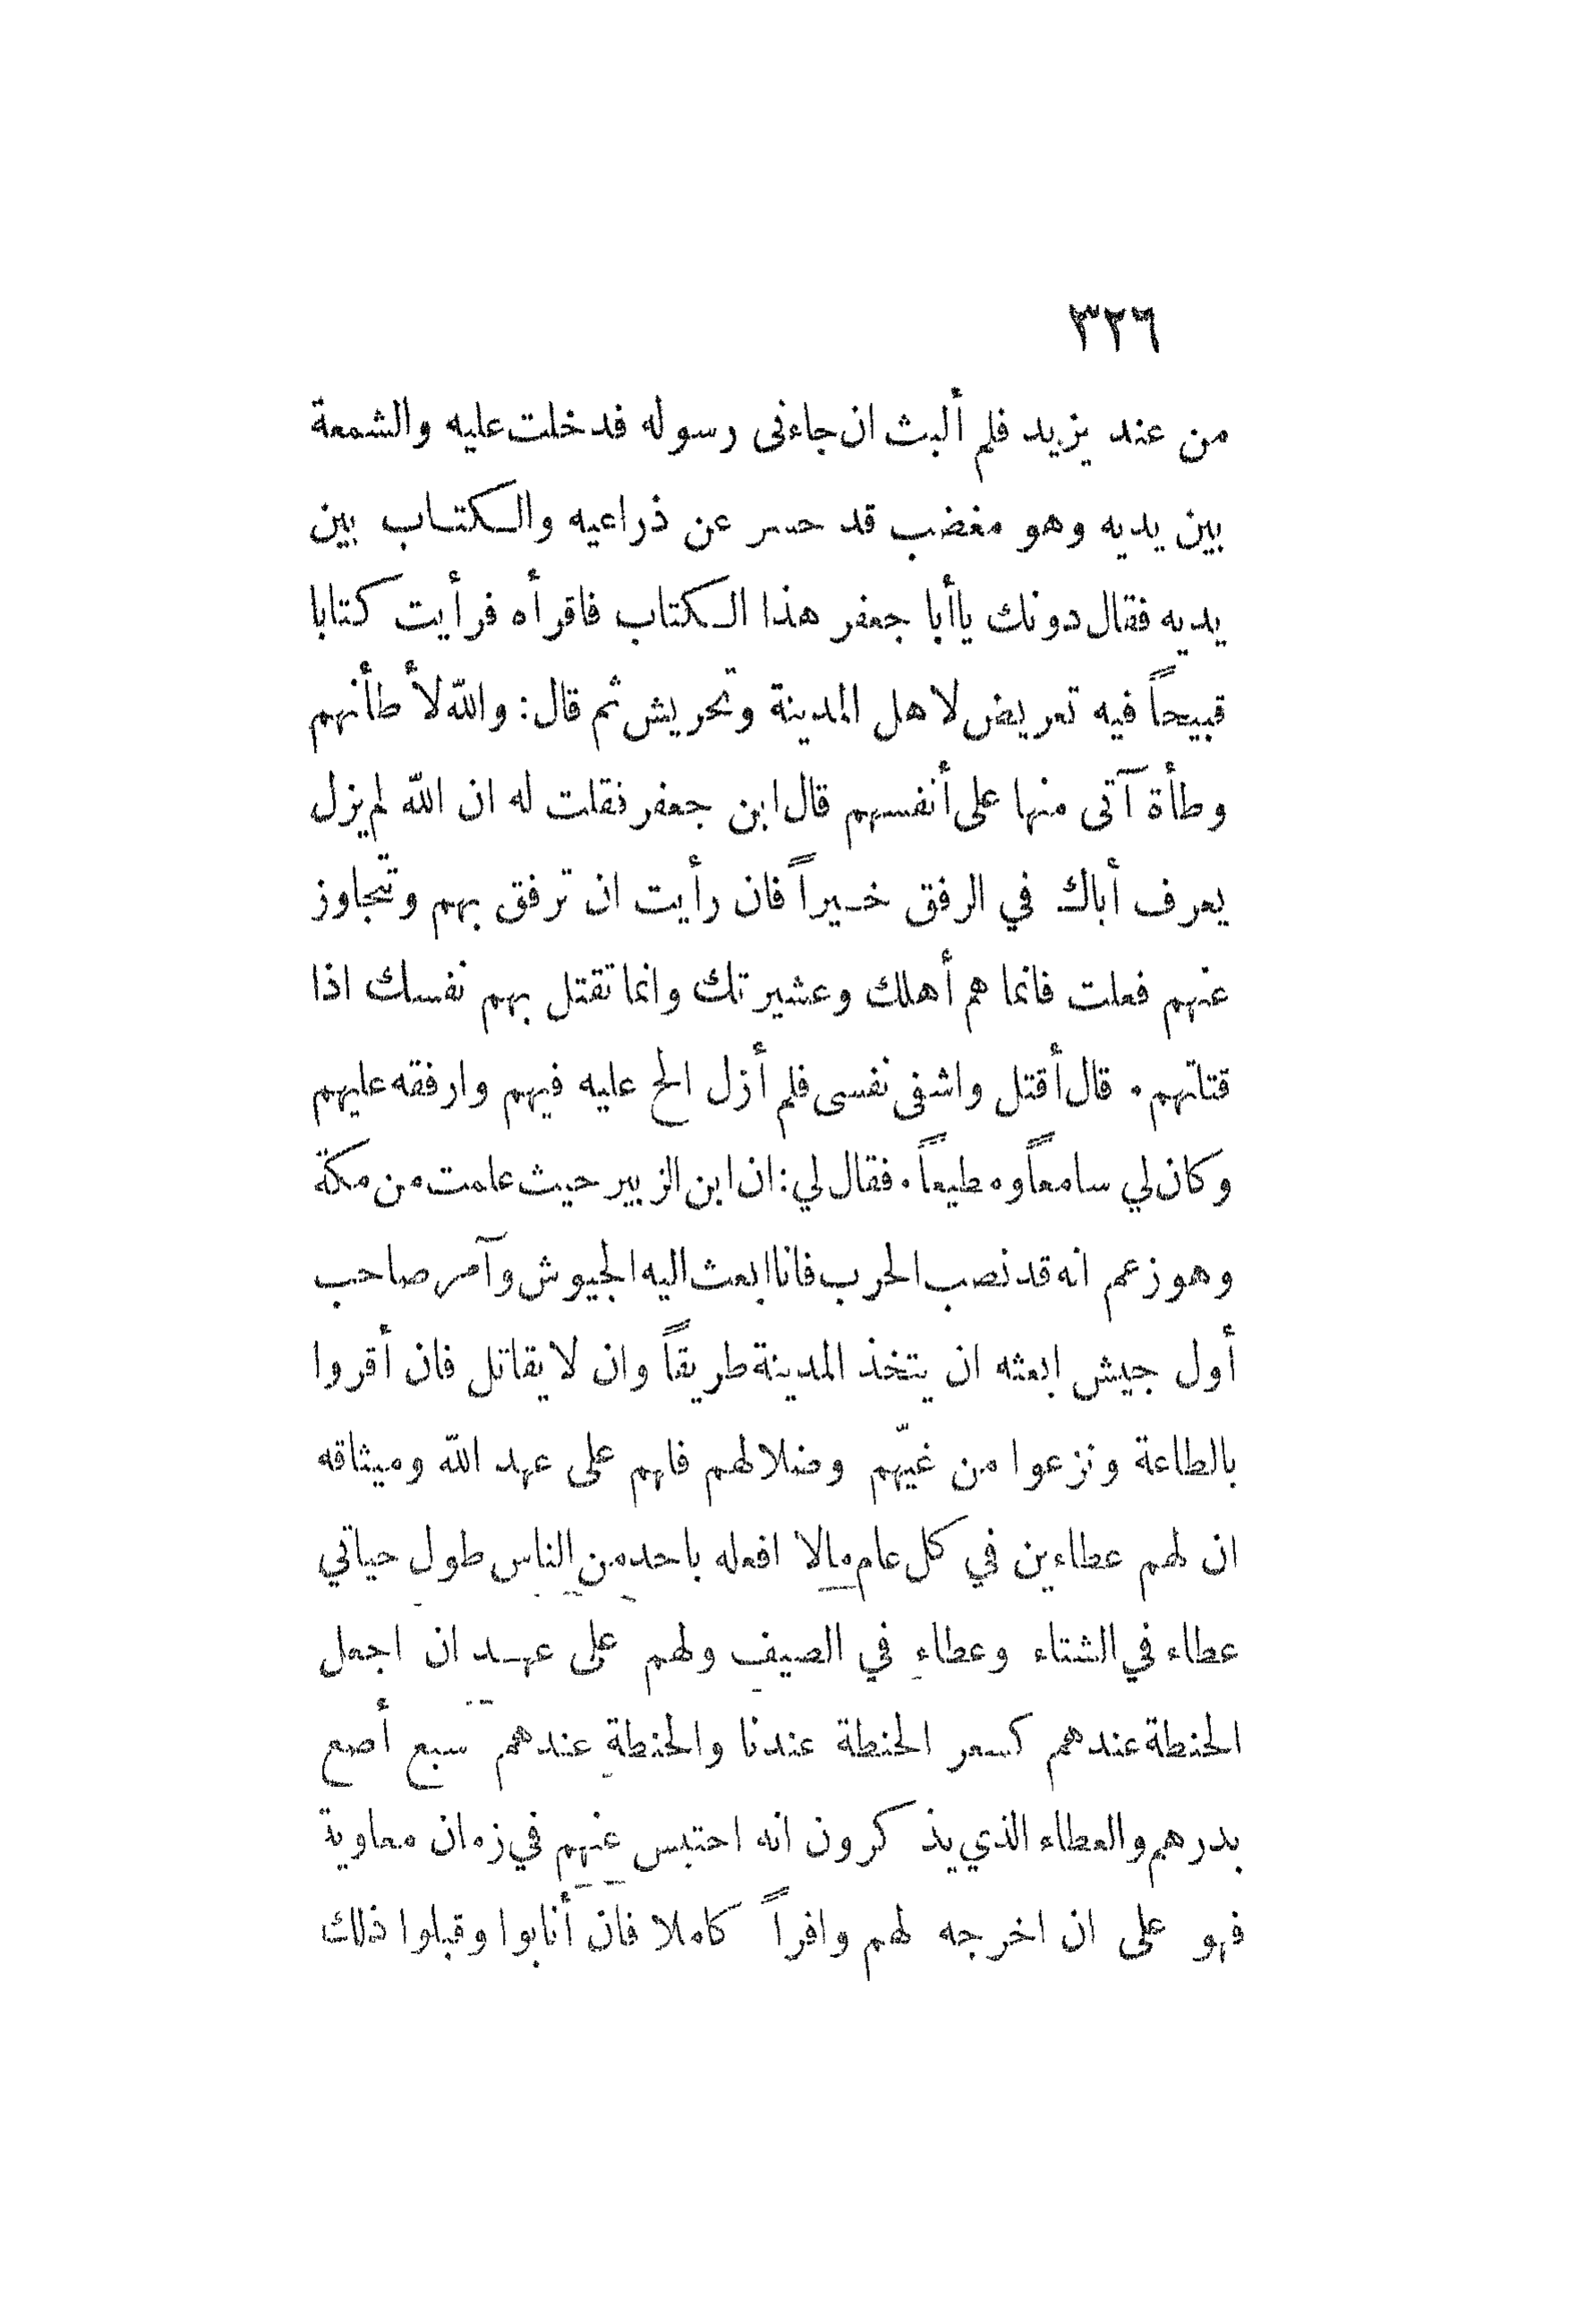 ٣٢٦
من عند يزيد فلم ألبث ان جاءنى رسوله فدخلت عليه والشمعة
بين يديه وهو مغضب قد حسر عن ذراعيه والكتاب بين
يديه فقال دونك ياأبا جعفر هذا الكتاب فاقرأه فرأيت كتابا
قبيحاً فيه تعريض لاهل المدينة وتحريش ثم قال: والله لأطأنهم
وطأة آتى منها على أنفسهم قال ابن جعفر فقلت له ان الله لم يزل
يعرف أباك في الرفق خيراً فان رأيت ان ترفق بهم وتتجاوز
عنهم فعلت فانما هم أهلك وعشيرتك وانما تقتل بهم نفسك اذا
قتلتهم. قال أقتل واشفى نفسى فلم أزل الح عليه فيهم وارفقه عليهم
وكان لي سامعاً ومطيعاً. فقال لي: ان ابن الزبير حيث علمت من مكة
وهو زعم انه قد نصب الحرب فانا ابعث اليه الجيوش وآمر صاحب
أول جيش ابعثه ان يتخذ المدينة طريقاً وان لا يقاتل فان أقروا
بالطاعة ونزعوا من غيّهم وضلالهم فلهم على عهد الله وميثاقه
ان لهم عطاءين في كل عام مالا افعله باحد من الناس طول حياتي
عطاء في الشتاء وعطاء في الصيف ولهم على عهد ان اجعل
الحنطة عندهم كسعر الحنطة عندنا والحنطة عندهم سبع أصع
بدرهم والعطاء الذي يذكرون انه احتبس عنهم في زمان معاوية
فهو على ان اخرجه لهم وافراً كاملا فان أنابوا وقبلوا ذلك